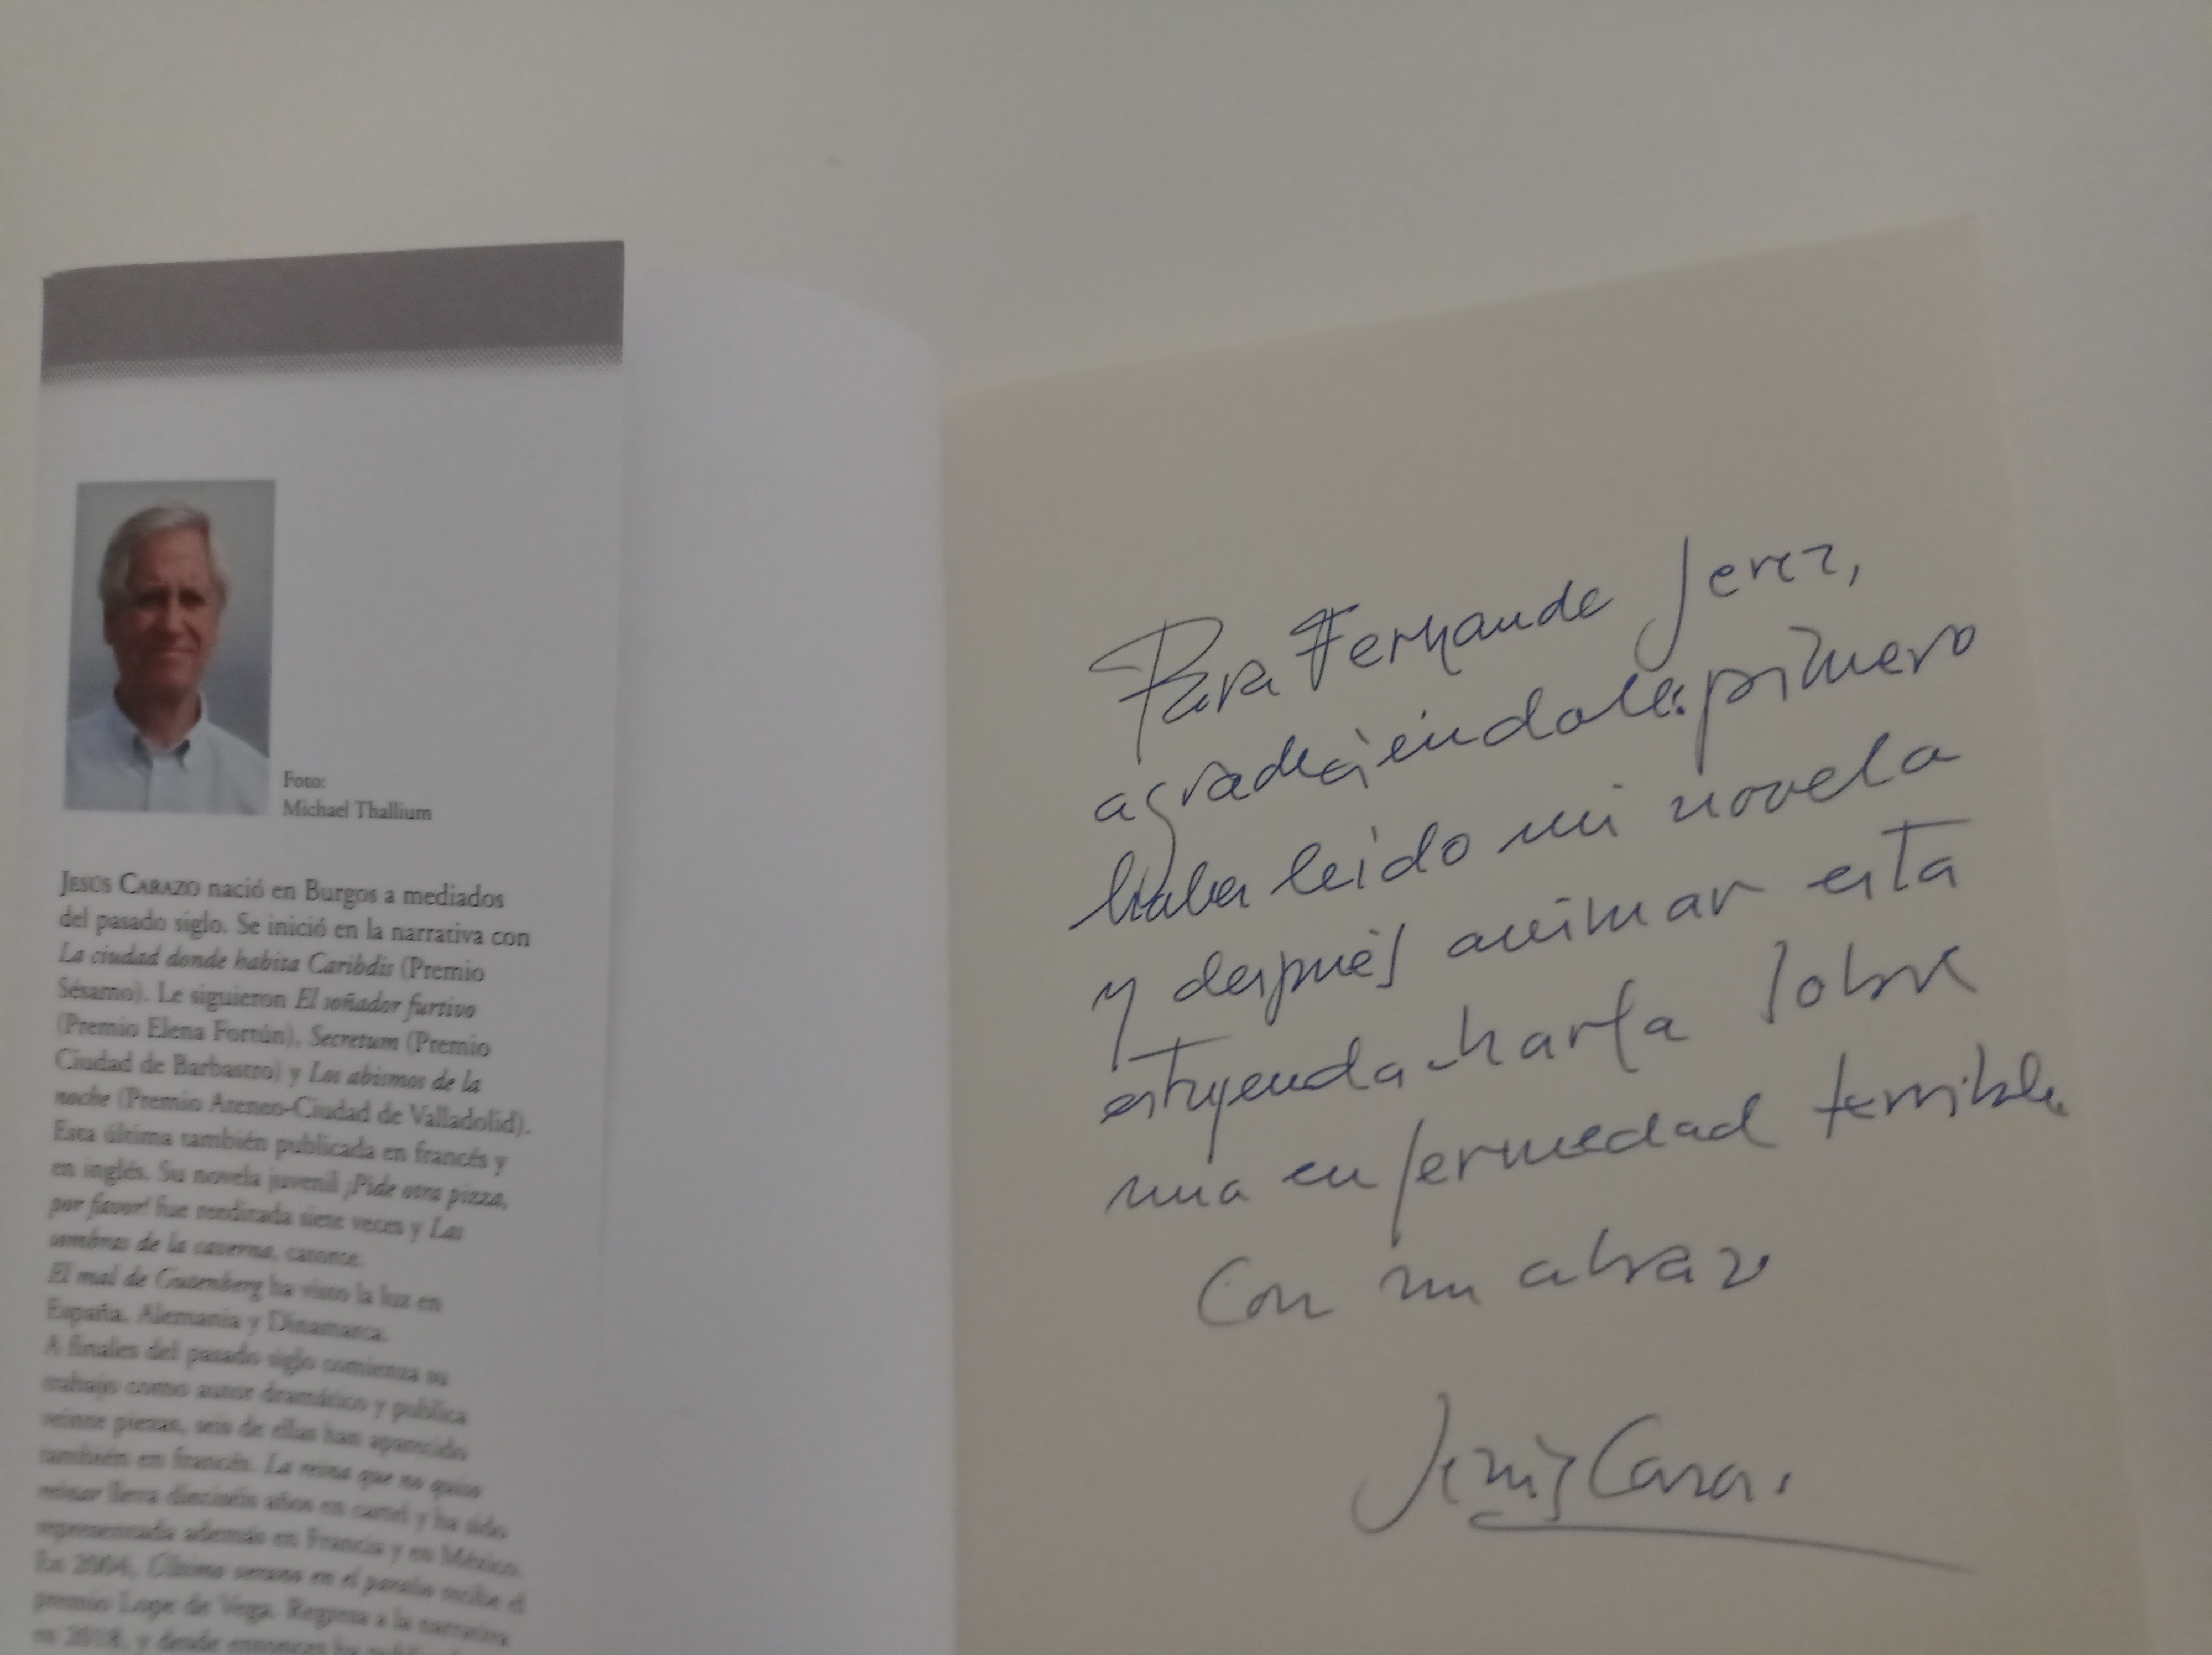 Foto:
Michael Thallium
JESÚS CARAZO nació en Burgos a mediados
del pasado siglo. Se inició en la narrativa con
La ciudad donde habita Caribdis (Premio
Sésamo). Le siguieron El soñador furtivo
(Premio Elena Fortún), Secretum (Premio
Ciudad de Barbastro) y Los abismos de la
noche (Premio Ateneo-Ciudad de Valladolid).
Esta última también publicada en francés y
en inglés. Su novela juvenil ¡Pide otra pizza,
por favor! fue reeditada siete veces y Las
sombras de la caverna, catorce.
El mal de Gutenberg ha visto la luz en
España, Alemania y Dinamarca.
A finales del pasado siglo comienza su
trabajo como autor dramático y publica
veinte piezas, seis de ellas han aparecido
también en francés. La reina que no quiso
reinar lleva dieciséis años en cartel y ha sido
representada además en Francia y en México.
En 2004, Último verano en el paraíso recibe el
premio Lope de Vega. Regresa a la narrativa
en 2018, y desde entonces ha
Para Fernando Jerez,
agradeciéndole: primero
haber leido mi novela
y después animar esta
estupenda charla sobre
una enfermedad terrible
Con un abrazo
Jesús Carazo